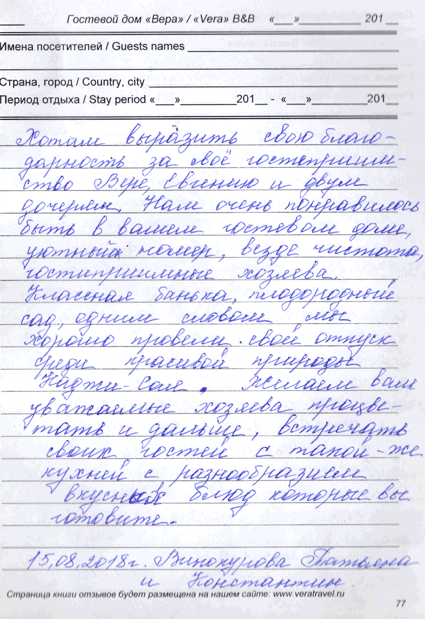 Гостевой дом «Вера» / «Vera» B&B «___»__________ 201__
Имена посетителей / Guests names
Страна, город / Country, city
Период отдыха / Stay period «___»__________201__ - «___»__________201__
Хотам выразить свою благо-
дарность за своё гостеприим-
ство Вере, Евгению и двум
дочерям. Нам очень понравилось
быть в вашем гостевом доме,
уютный номер, везде чистота,
гостиприимные хозяева.
Классная банька, плодородный
сад, одним словом мы
хорошо провели свой отпуск
среди красивой природы
Хаджи-Сая. Желаем вам
уважаемые хозяева процве-
тать и дальше, встречать
своих гостей с такой-же
кухней с разнообразием
вкусных блюд которые вы
готовите.
15.08.2018г. Винокурова Татьяна
и Константин.
Страница книги отзывов будет размещена на нашем сайте: www.veratravel.ru
77